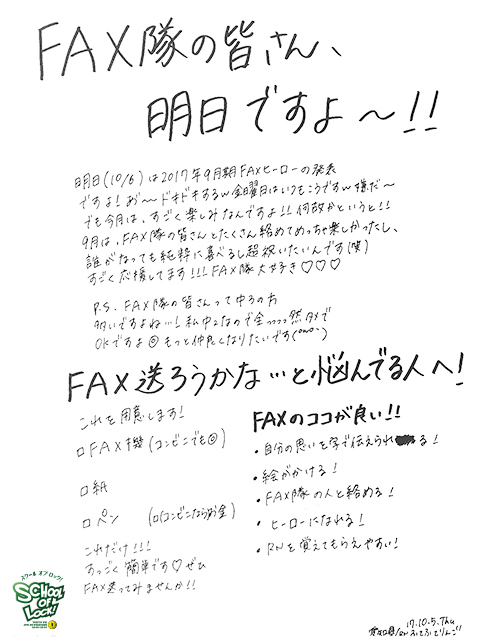 FAX隊の皆さん、
明日ですよ〜!!
明日(10/6)は2017年9月期FAXヒーローの発表
ですよ!お〜ドキドキするw金曜日はいつもこうですw嫌だ〜
でも今月は、すごく楽しみなんですよ!!何故かというと!!
9月は、FAX隊の皆さんとたくさん絡めてめっちゃ楽しかったし、
誰がなっても純粋に喜べるし超祝いたいんです(笑)
すごく応援してます!!!FAX隊大好き♡♡♡
P.S. FAX隊の皆さんって中3の方
多いですよね…!私中2なので全っっっっ然タメで
OKですよ☺もっと仲良くなりたいです
FAX送ろうかな…と悩んでる人へ!
これを用意します!
□FAX機(コンビニでも◎)
□紙
□ペン (□コンビニならお金)
これだけ!!!
すっごく簡単です♡ぜひ
FAX送ってみませんか!!
FAXのココが良い!!
・自分の思いを字で伝えられる!
・絵がかける!
・FAX隊の人と絡める!
・ヒーローになれる!
・RNを覚えてもらえやすい!
スクール オブ ロック!
SCHOOL OF LOCK!
17.10.5.Thu